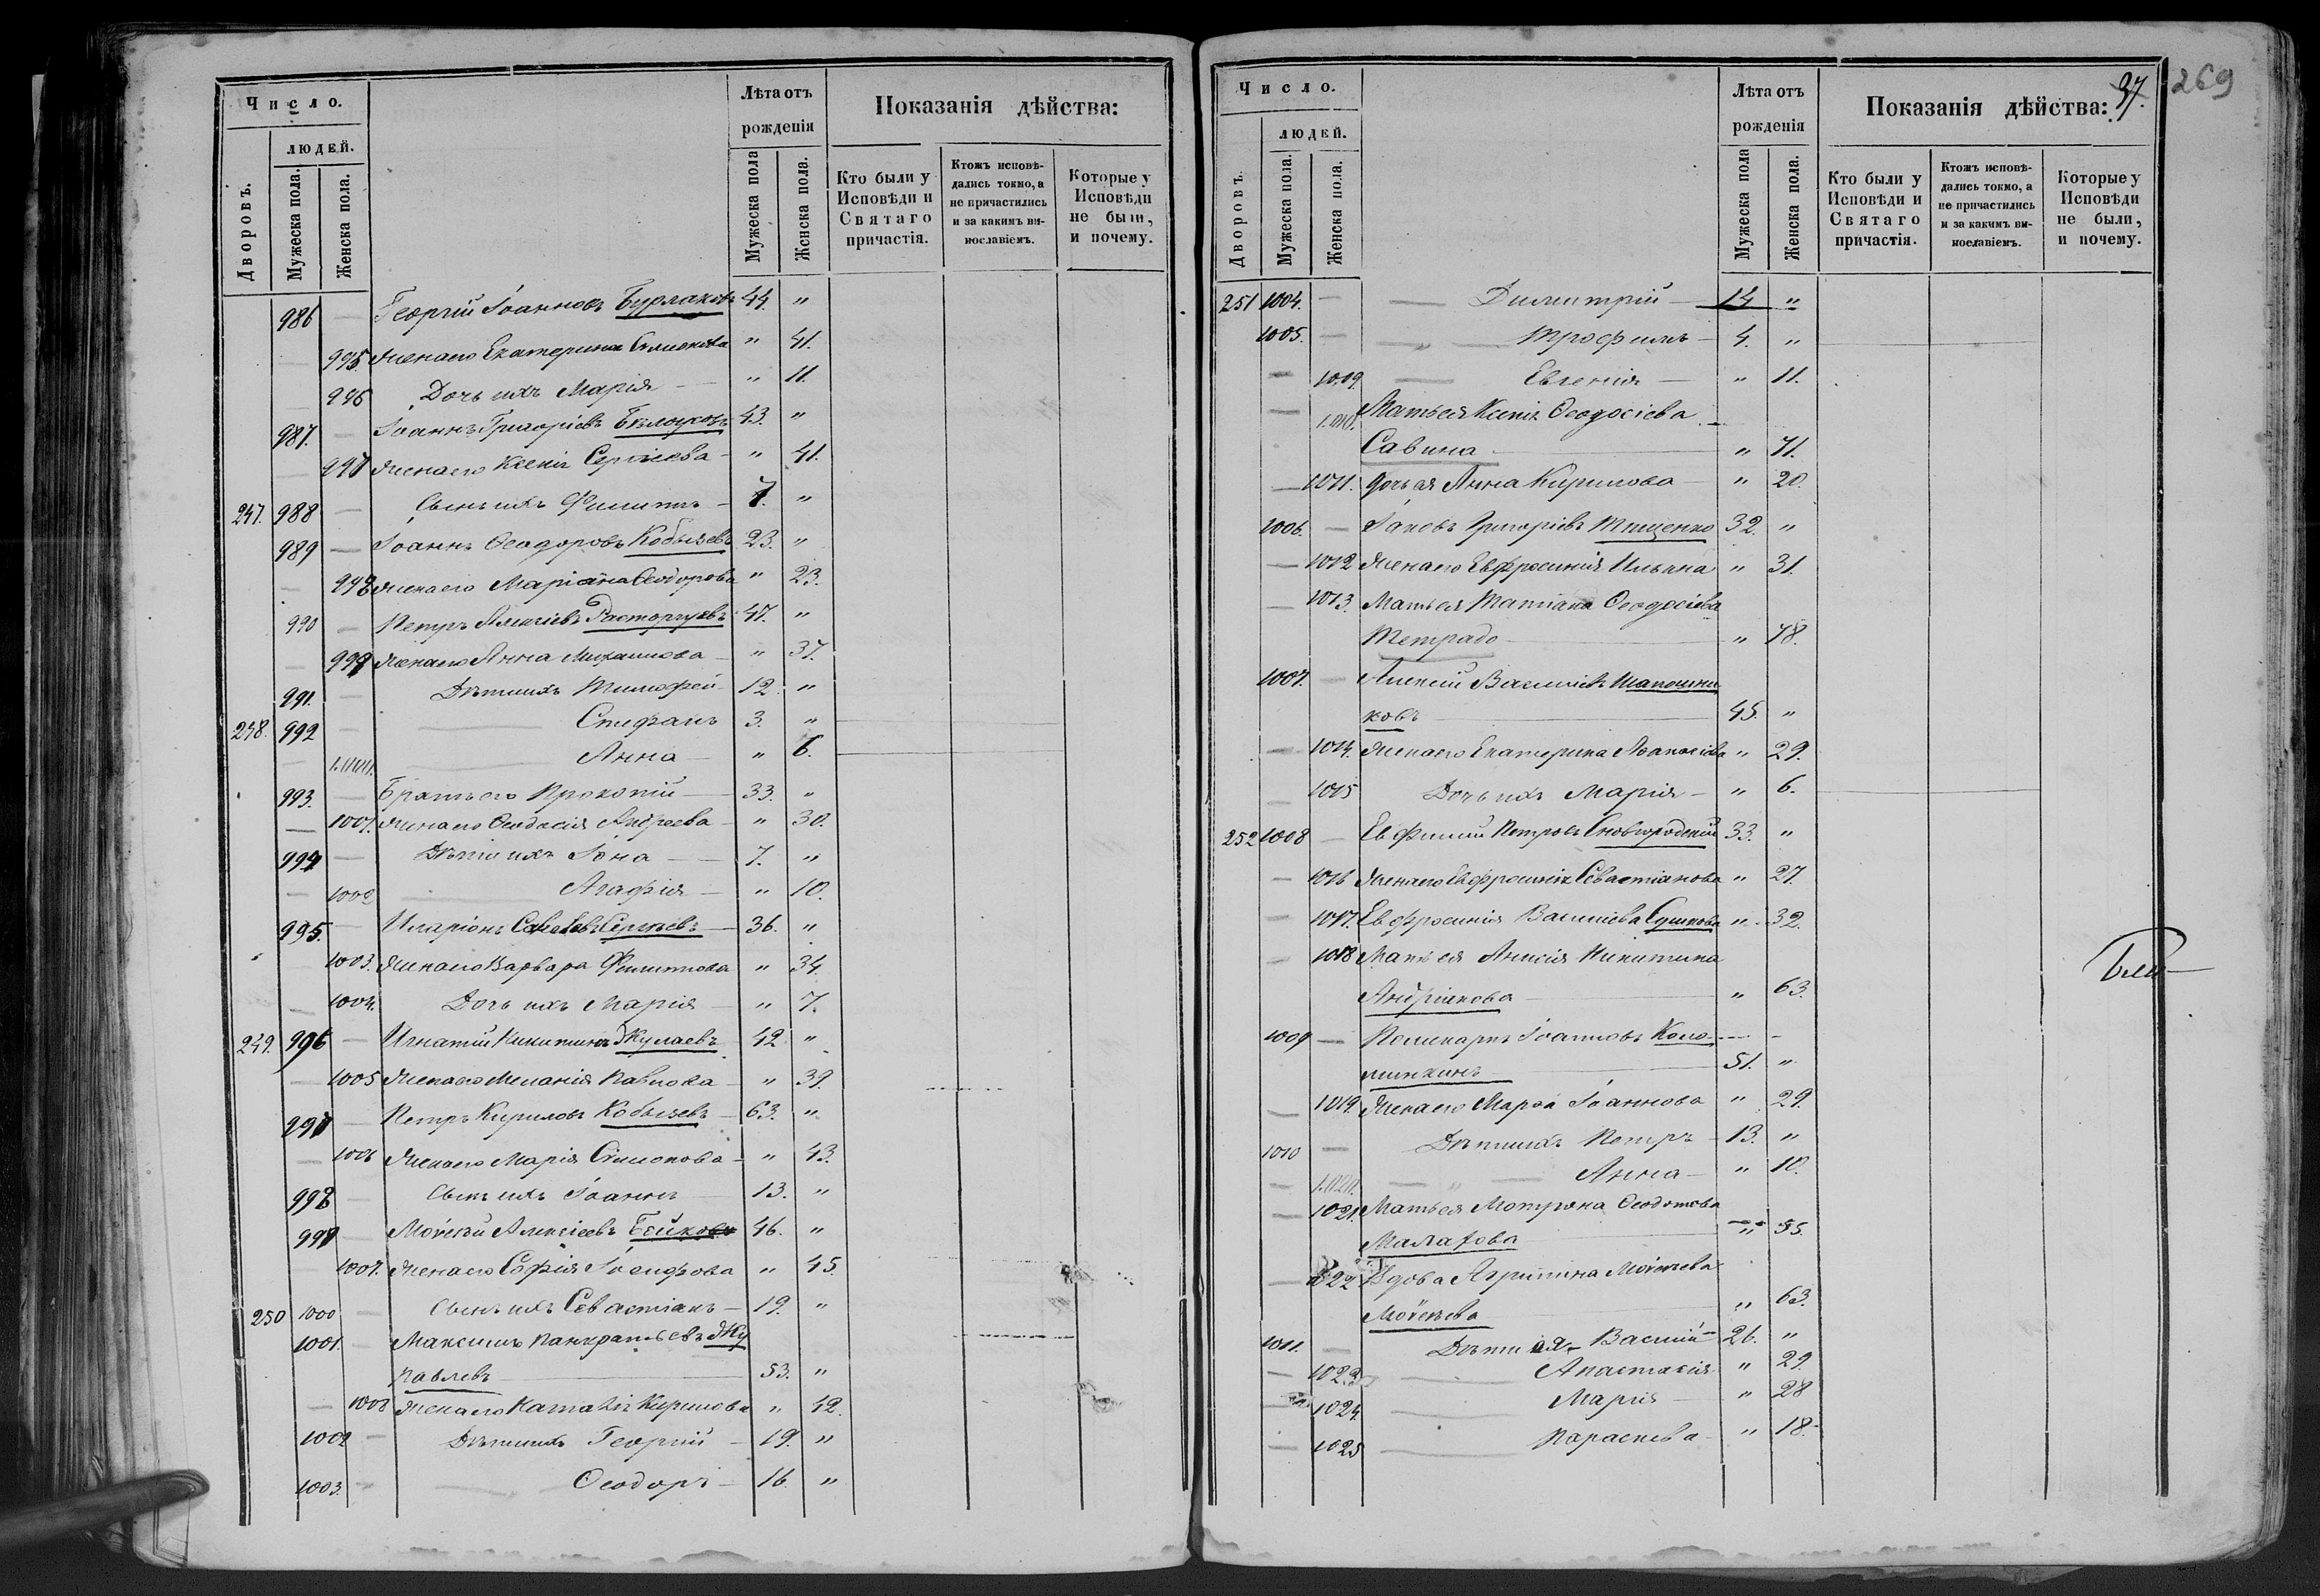 Число.
Лѣта отъ
рожденія
Показанія дѣйства:
Дворовъ.
людей.
Мужеска пола.
Женска пола.
Мужеска пола
Женска пола.
Кто были у Исповѣди и Святаго причастія.
Ктожъ исповѣдались токмо, а не причастились и за какимъ винословіемъ.
Которые у Исповѣди не были, и почему.
986 — Георгій Іоанновъ Бурлаковъ 44. "
— 995 Жена его Екатерина Симонова " 41.
— 996 Дочь ихъ Марія — " 11.
987. — Іоаннъ Григоріевъ 43. "
— 997 Жена его Ксенія Сергіева — " 41.
247. 988 — Сынъ ихъ Филиппъ — 7. "
989 — Іоаннъ Ѳеодоровъ Кобызевъ 23. "
— 998 Жена его Маріанна Ѳеодорова " 23.
990 — Петръ Алексіевъ Расторгуевъ 47. "
— 999 Жена его Анна Михаилова — " 37.
991. — Дѣти ихъ Тимофей — 12. "
248. 992 — Стефанъ 3. "
— 1000. Анна — " 6.
993. — Братъ его Прокопій — 33. "
— 1001. Жена его Ѳеодосія Андреева — " 30.
994 — Дѣти ихъ Іона — 7. "
— 1002 Агафія — " 10.
995. — Иларіонъ Савваевъ Сергіевъ — 36. "
1003. Жена его Варвара Филиппова " 34.
— 1004. Дочь ихъ Марія — " 7.
249. 996 — Игнатій Никитинъ Жулаевъ 42 "
— 1005 Жена его Меланія Павлова — " 39.
997 — Петръ Кириловъ Кобызевъ — 63. "
— 1006 Жена его Марія Симонова — " 43.
998 — Сынъ ихъ Іоаннъ — 13. "
999 — Моѵсей Алексіевъ Бойковъ 46. "
— 1007. Жена его Софія Іосифова " 45.
250 1000 — Сынъ ихъ Севастіанъ — 19. "
1001. — Максимъ Панкратьевъ Жу
равлевъ — 53. "
— 1008 Жена его Наталія Кирилова " 42.
1002 — Дѣти ихъ Георгій — 19. "
1003. — Ѳеодоръ — 16. "
Число.
Лѣта отъ
рожденія
Показанія дѣйства:
97.
269
Дворовъ.
людей.
Мужеска пола.
Женска пола.
Мужеска пола
Женска пола.
Кто были у Исповѣди и Святаго причастія.
Ктожъ исповѣдались токмо, а не причастились и за какимъ винословіемъ.
Которые у Исповѣди не были, и почему.
251 1004. — Димитрій — 14 "
1005. — Трофимъ — 4. "
— 1009. Евгенія — " 11.
— 1010. Мать ея Ксенія Ѳеодосіева
Савина — " 71.
— 1011. Дочь ея Анна Кирилова — " 20.
1006. — Іаковъ Григоріевъ Тищенко 32. "
— 1012 Жена его Евфросинія Ильина " 31.
— 1013. Мать ея Татіана Ѳеодосіева
Тетрадо — " 78.
1007. — Алексій Василіевъ Шапошни
ковъ — 45. "
— 1014. Жена его Екатерина Аѳанасіева " 29.
— 1015 Дочь ихъ Марія — " 6.
252 1008 — Евфимій Петровъ Сновгородскій 33. "
— 1016 Жена его Евфросинія Севастіанова " 27.
— 1017. Евфросинія Василіева Сушкова " 32.
— 1018 Мать ея Анисія Никитина
Андріанова — " 63.
1009 — Поликарпъ Іоанновъ Коло
51. "
— 1019. Жена его Марѳа Іоаннова " 29.
1010 — Дѣти ихъ Петръ — 13. "
— 1020. Анна — " 10.
— 1021. Мать ея Мотрона Ѳеодотова
Малахова " 55.
— 1022 Вдова Агрипина Моѵсеева
Моѵсеева " 63.
1011. — Дѣти ея Василій — 26. "
— 1023 Анастасія " 29.
1024. Марія — " 28
— 1025 Параскева — " 18.